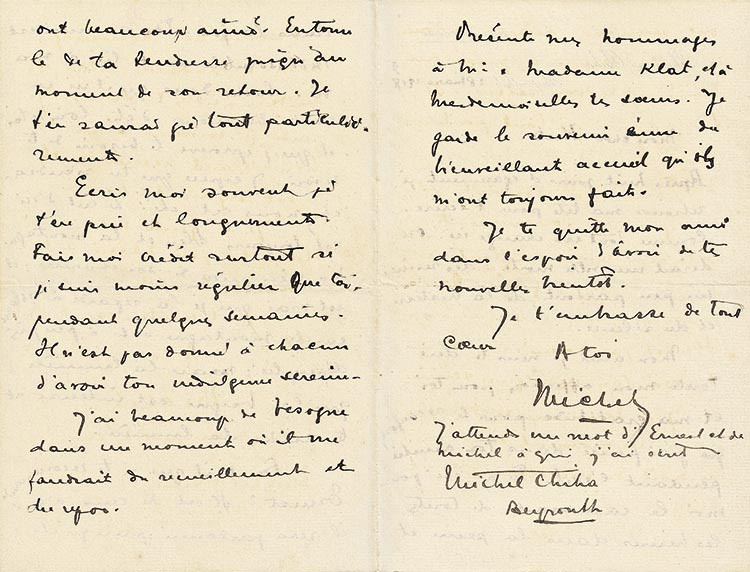 ont beaucoup aimé. Entoure
le de ta tendresse jusqu'au
moment de son retour. Je
t'en saurai gré tout particuliè-
rement.
Ecris moi souvent je
t'en prie et longuement.
Fais moi crédit surtout si
je suis moins régulier que toi,
pendant quelques semaines.
Il n'est pas donné à chacun
d'avoir ton indulgence sereine.
J'ai beaucoup de besogne
dans un moment où il me
faudrait du recueillement et
du repos.
Présente mes hommages
à Mr & Madame Klat, et à
Mesdemoiselles tes soeurs. Je
garde le souvenir ému du
bienveillant accueil qu'ils
m'ont toujours fait.
Je te quitte mon ami
dans l'espoir d'avoir de tes
nouvelles bientôt.
Je t'embrasse de tout
coeur
A toi
Michel
J'attends un mot d'Ernest et de
Michel à qui j'ai écrit
Michel Chiha
Beyrouth